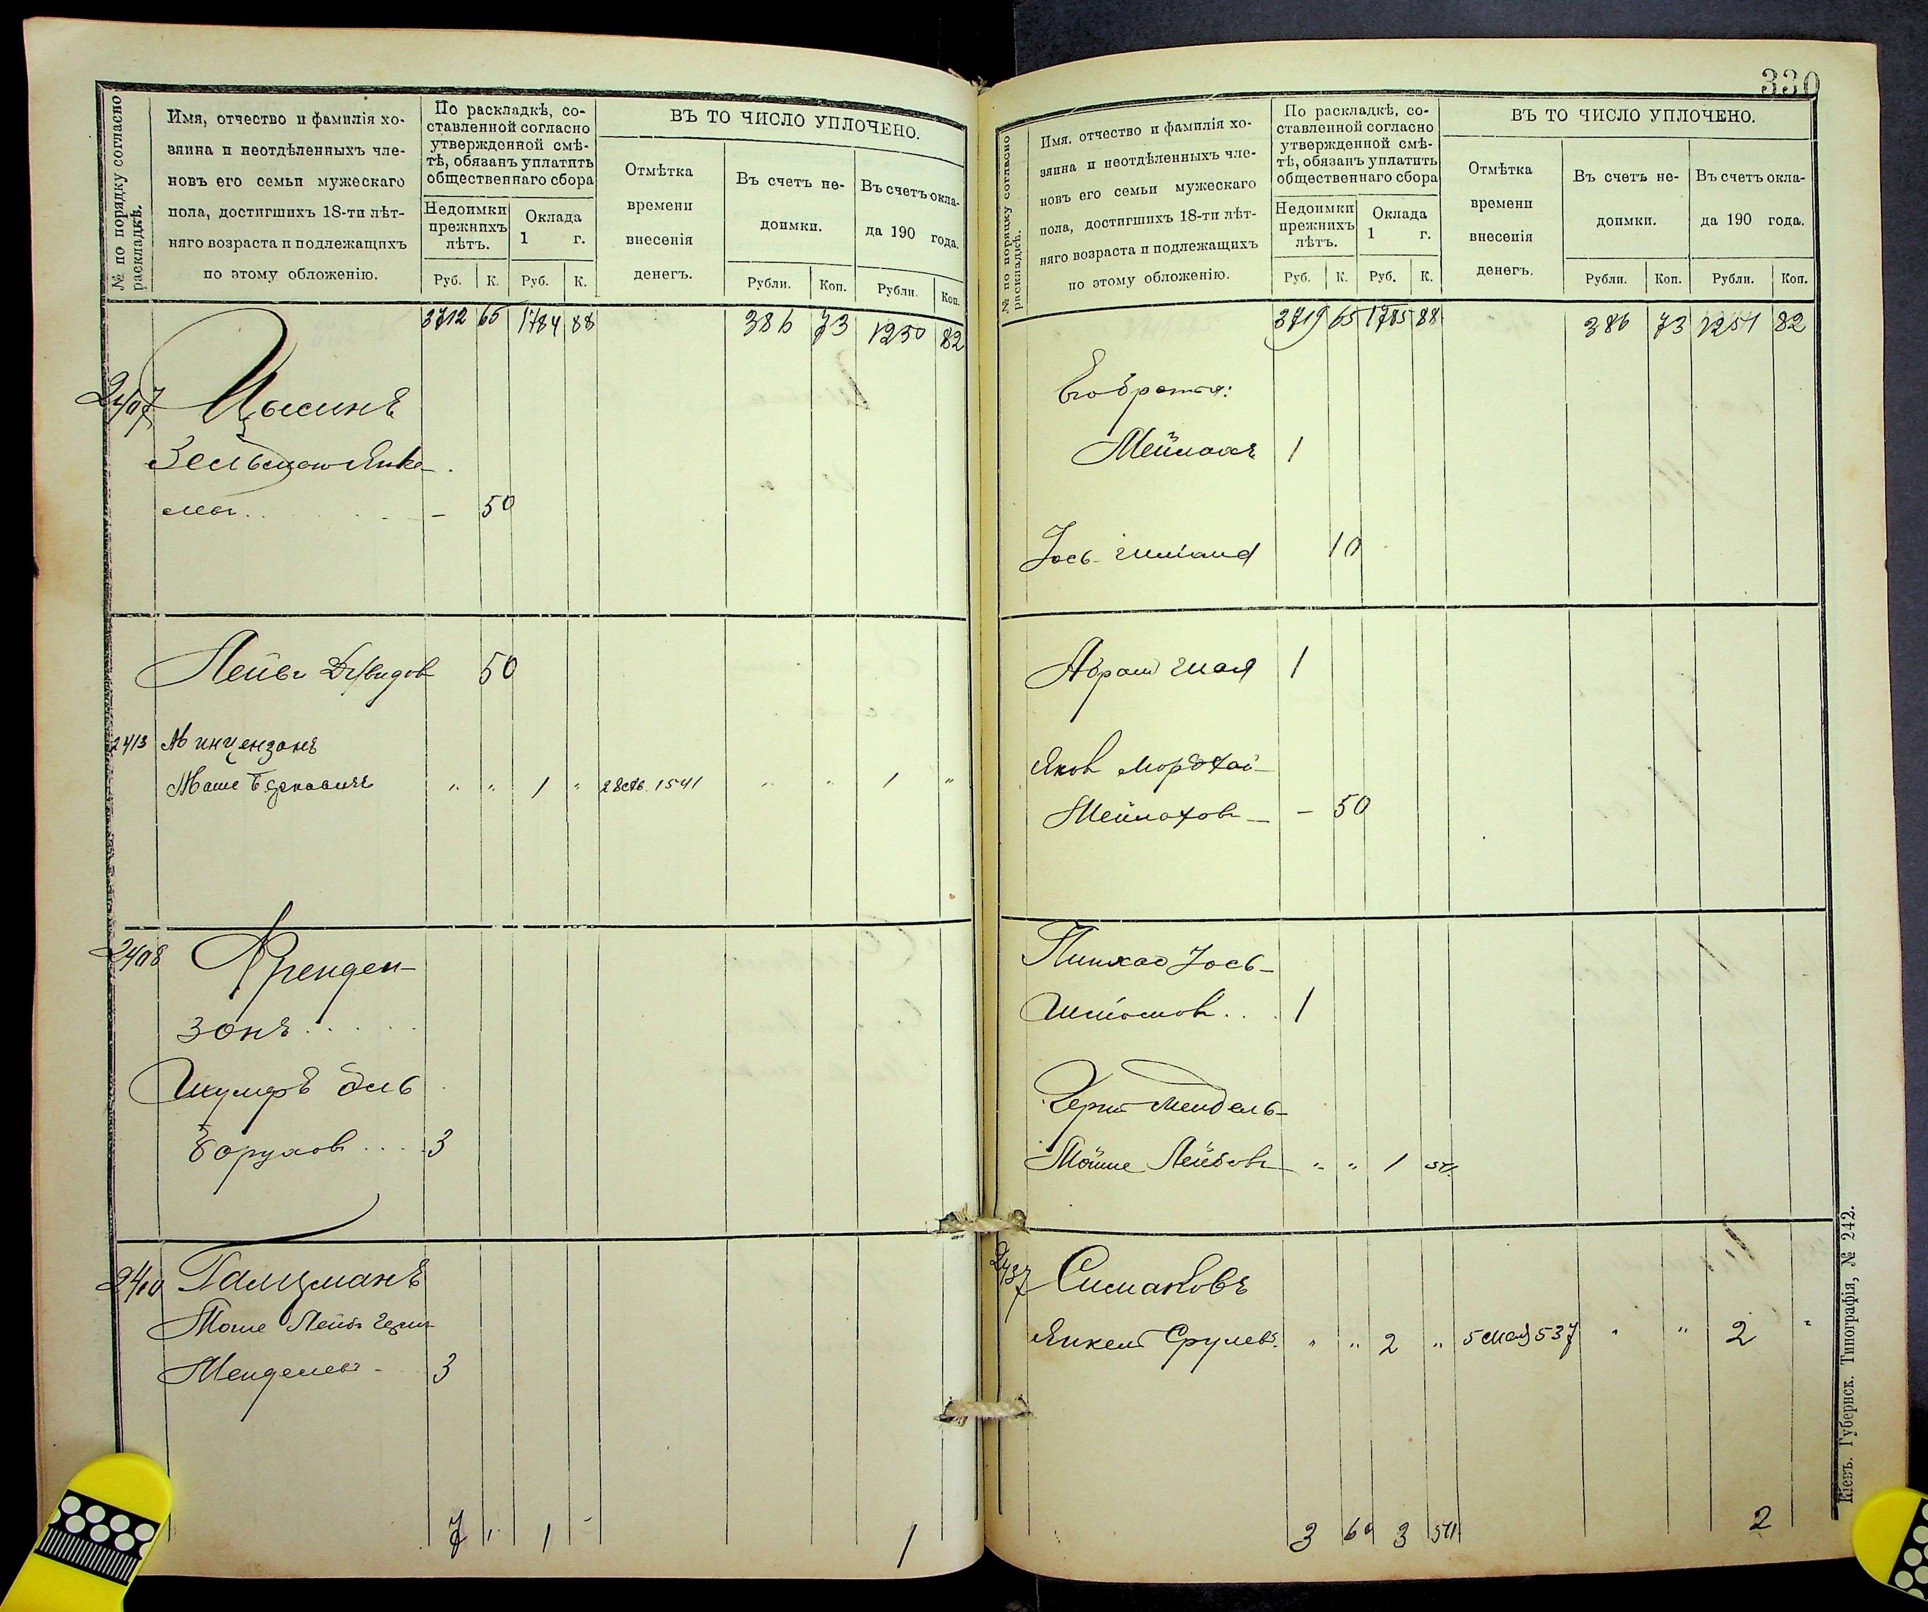 № по порядку согласно
раскладкѣ.
Имя, отчество и фамилія хо-
зяина и неотдѣленныхъ чле-
новъ его семьи мужескаго
пола, достигшихъ 18-ти лѣт-
няго возраста и подлежащихъ
по этому обложенію.
По раскладкѣ, со-
ставленной согласно
утвержденной смѣ-
тѣ, обязанъ уплатить
общественнаго сбора
Недоимки
прежнихъ
лѣтъ.
Оклада
1 г.
Руб. К. Руб. К.
ВЪ ТО ЧИСЛО УПЛОЧЕНО.
Отмѣтка
времени
внесенія
денегъ.
Въ счетъ не-
доимки.
Въ счетъ окла-
да 190 года.
Рубли. Коп. Рубли. Коп.
3712 65 1784 88 386 73 1250 82
2407 Цысинъ
50
Лейба Давидов 50
2413 Минцензонъ
Маше Берковичъ " " 1 " 1541 " " 1 "
2408 Аренден-
зонъ
Борухов 3
2410 Галицманъ
Мошe Лейба Герш
Менделевъ 3
7 1 1
330
№ по порядку согласно
раскладкѣ.
Имя, отчество и фамилія хо-
зяина и неотдѣленныхъ чле-
новъ его семьи мужескаго
пола, достигшихъ 18-ти лѣт-
няго возраста и подлежащихъ
по этому обложенію.
По раскладкѣ, со-
ставленной согласно
утвержденной смѣ-
тѣ, обязанъ уплатить
общественнаго сбора
Недоимки
прежнихъ
лѣтъ.
Оклада
1 г.
Руб. К. Руб. К.
ВЪ ТО ЧИСЛО УПЛОЧЕНО.
Отмѣтка
времени
внесенія
денегъ.
Въ счетъ не-
доимки.
Въ счетъ окла-
да 190 года.
Рубли. Коп. Рубли. Коп.
3719 65 1785 88 386 73 1251 82
Его братья:
Мейлахъ 1
Іось Шлiома 10
Абрам Шая 1
Яков Мордхай
Мейлахов — - 50
Пинхас Іось-
Шлiомов 1
Герш Мендель-
Мойше Лейбов " " 1
2437 Симаковъ
Янкель Срулев. " " 2 " 5 мая 537 " " 2 "
3 60 3 2
Кіевъ. Губернск. Типографія, № 242.